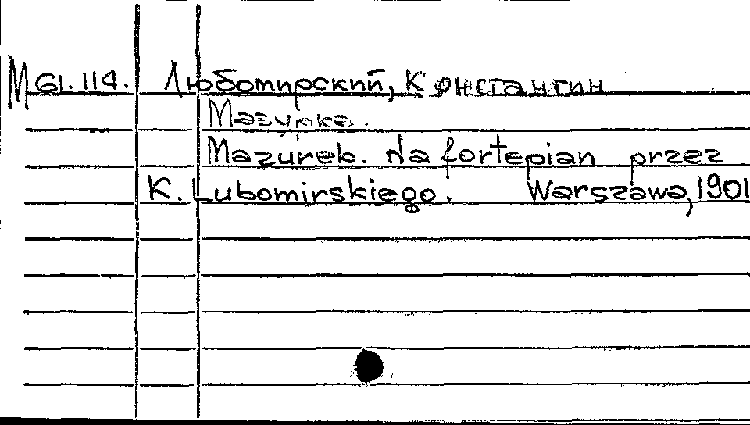 M 61.114. Любомирский, Константин
Мазурка.
Mazurek. Na fortepian przez
K. Lubomirskiego. Warszawa, 1901